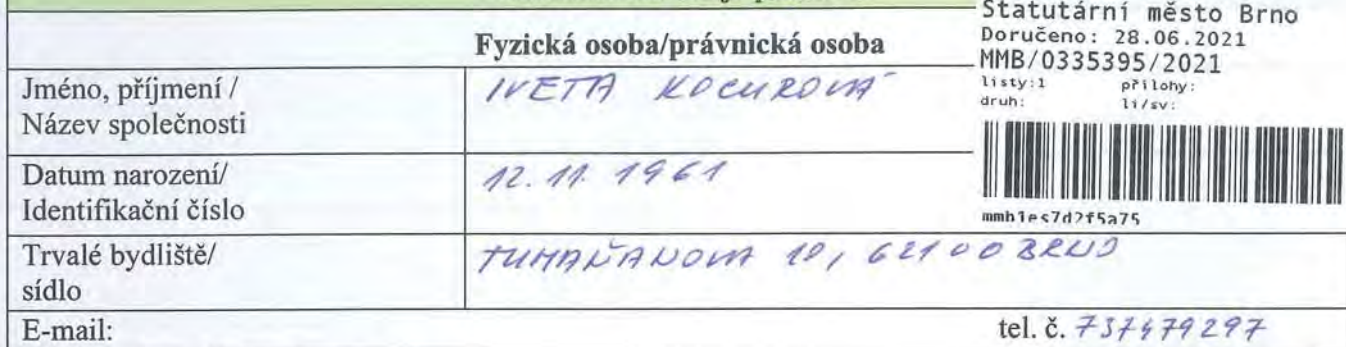 Statutární město Brno
Doručeno: 28.06.2021
MMB/0335395/2021
listy:1 přílohy:
druh: li/sv:
mmb1es7d2f5a75
Fyzická osoba/právnická osoba
Jméno, příjmení /
Název společnosti
IVETA KOCUROVÁ
Datum narození/
Identifikační číslo
12. 11. 1961
Trvalé bydliště/
sídlo
TUMAŇANOVA 10, 621 00 BRNO
E-mail:
tel. č. 737479297